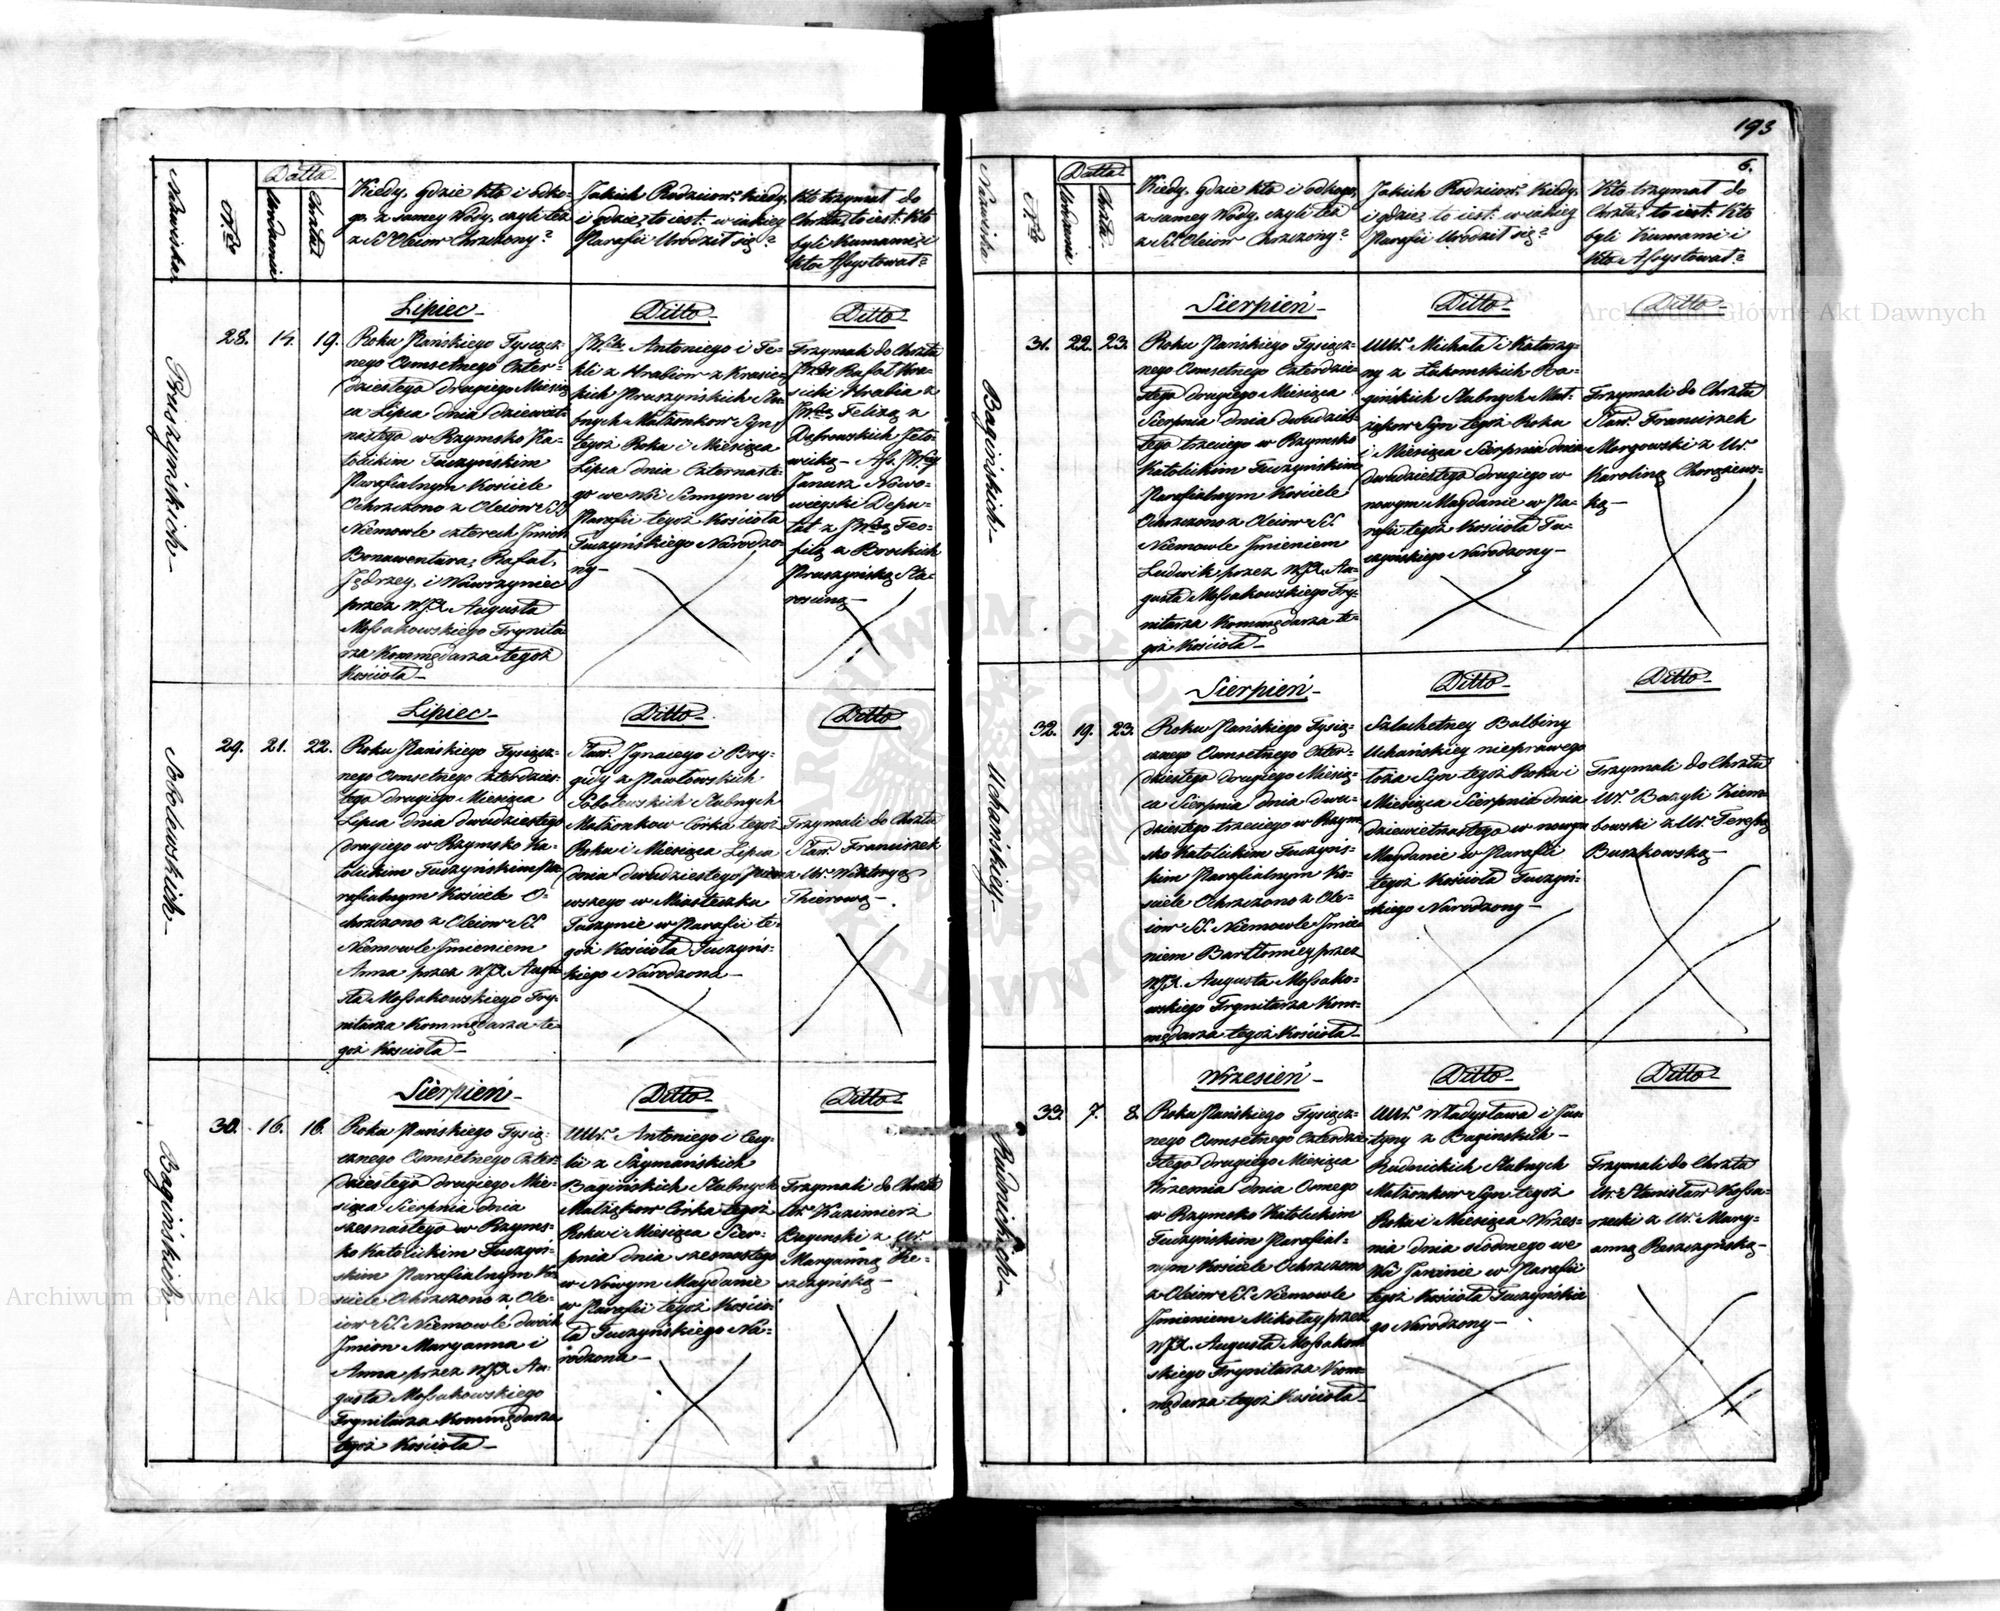 193
6.
Nazwiska
N.ro
Datta
Urodzenia
Chrztu
Kiedy, gdzie kto i od ko-
go, z samey Wody, czyli też
z SS. Oleiow Chrzczony?
Jakich Rodziców, kiedy,
i gdzie, to iest: w iakiey
Parafii Urodził się?
Kto trzymał do
Chrztu, to iest: Kto
byli Kumami i
kto Assystował?
Pruszyńskich
28. 14. 19.
Lipiec
Roku Pańskiego Tysiącz-
nego Osmsetnego Czter-
dziestego drugiego Miesią-
ca Lipca dnia dziewięt-
nastego w Rzymsko Ka-
tolickim Tuczyńskim
Parafialnym Kościele
Ochrzczono z Oleiow SS.
Niemowle czterech Jmion
Bonawentura, Rafał,
Jędrzey, i Wawrzyniec
przez WJX. Augusta
Mossakowskiego Trynita-
rza Kommędarza tegoż
Kościoła
Ditto
Antoniego i Te-
kli z Hrabiow z Krasic-
kich Pruszyńskich Ślu-
bnych Małżonkow Syn
tegoż Roku i Miesiąca
Lipca dnia Czternaste-
go we Wsi Sennym w
Parafii tegoż Kościoła
Tuczyńskiego Narodzo-
ny
Ditto
Trzymali do Chrztu
Rafał Kra-
sicki Hrabia z
Felixą z
wicką
Janusz Nowo-
wieyski Depu-
tat z Teo-
filą z
Pruszyńską Sta-
rosciną
Sobolewskich
29. 21. 22.
Lipiec
Roku Pańskiego Tysiącz-
nego Osmsetnego Czterdzies-
tego drugiego Miesiąca
Lipca dnia dwudziestego
drugiego w Rzymsko Ka-
tolickim Tuczyńskim Pa-
rafialnym Kościele O-
chrzczono z Oleiow SS.
Niemowle Jmieniem
Anna przez WJX. Augu-
sta Mossakowskiego Try-
nitarza Kommędarza te-
goż Kościoła
Ditto
Sław. Jgnacego i Bry-
gidy z Pawłowskich
Sobolewskich Ślubnych
Małżonkow Córka tegoż
Roku i Miesiąca Lipca
dnia dwudziestego pier-
wszego w Miasteczku
Tuczynie w Parafii te-
goż Kościoła Tuczyńs-
kiego Narodzona
Ditto
Trzymali do Chrztu
Sław. Franciszek
z Ur. Wiktoryą
Thierową
Bagińskich
30. 16. 16.
Sierpień
Roku Pańskiego Tysią-
cznego Osmsetnego Czter-
dziestego drugiego Mie-
siąca Sierpnia dnia
szesnastego w Rzyms-
ko Katolickim Tuczyń-
skim Parafialnym Ko-
sciele Ochrzczono z Ole-
iow SS. Niemowle dwóch
Jmion Maryanna i
Anna przez WJX. Au-
gusta Mossakowskiego
Trynitarza Kommędarza
tegoż Kościoła
Ditto
UUr. Antoniego i Cecy-
lii z Szymańskich
Bagińskich Ślubnych
Małżąkow Córka tegoż
Roku i Miesiąca Sier-
pnia dnia szesnastego
w Nowym Maydanie
w Parafii tegoż Kościo-
ła Tuczyńskiego Na-
rodzona
Ditto
Trzymali do Chrztu
Ur. Kazimierz
Baginski z Ur.
Maryanną Re-
szczyńską
Nazwiska
N.ro
Datta
Urodzenia
Chrztu
Kiedy, gdzie kto i od kogo,
z samey Wody, czyli też
z SS. Oleiow Chrzczony?
Jakich Rodziców, kiedy,
i gdzie, to iest: w iakiey
Parafii Urodził się?
Kto trzymał do
Chrztu, to iest: Kto
byli Kumami i
kto Assystował?
Bagińskich
31. 22. 23.
Sierpień
Roku Pańskiego Tysiącz-
nego Osmsetnego Czterdzie-
stego drugiego Miesiąca
Sierpnia dnia dwudzies-
tego trzeciego w Rzymsko
Katolickim Tuczyńskim
Parafialnym Kościele
Ochrzczono z Oleiow SS.
Niemowle Jmieniem
Ludwik, przez WJX. Au-
gusta Mossakowskiego Try-
nitarza Kommędarza te-
goż Kościoła
Ditto
UUr. Michała i Katarzy-
ny z Łukomskich Ba-
gińskich Ślubnych Mał-
żąkow Syn tegoż Roku
i Miesiąca Sierpnia dnia
dwudziestego drugiego w
nowym Maydanie w Pa-
rafii tegoż Kościoła Tu-
czyńskiego Narodzony
Ditto
Trzymali do Chrztu
Sław. Franciszek
Morgowski z Ur.
Karoliną Chorążews-
ką
Uchańskiey
32. 19. 23.
Sierpień
Roku Pańskiego Tysią-
cznego Osmsetnego Czter-
dziestego drugiego Miesią-
ca Sierpnia dnia dwu-
dziestego trzeciego w Rzym-
sko Katolickim Tuczyńs-
kim Parafialnym Ko-
sciele Ochrzczono z Ole-
iow SS. Niemowle Jmie-
niem Bartłomiey, przez
WJX. Augusta Mossako-
wskiego Trynitarza Kom-
mędarza tegoż Kościoła
Ditto
Szlachetney Balbiny
Uchańskiey nieprawego
łoża Syn tegoż Roku i
Miesiąca Sierpnia dnia
dziewietnastego w nowym
Maydanie w Parafii
tegoż Kościoła Tuczyń-
skiego Narodzony
Ditto
Trzymali do Chrztu
Ur. Bazyli Ziem-
bowski z Ur. Teressą
Buszkowską
Rudnickich
33. 7. 8.
Wrzesień
Roku Pańskiego Tysiącz-
nego Osmsetnego Czterdzie-
stego drugiego Miesiąca
Wrzesnia dnia Osmego
w Rzymsko Katolickim
Tuczyńskim Parafial-
nym Kościele Ochrzczono
z Oleiow SS. Niemowle
Jmieniem Mikołay, przez
WJX. Augusta Mossakow-
skiego Trynitarza Kom-
mędarza tegoż Kościoła
Ditto
UUr. Władysława i Jus-
tyny z Baginskich
Rudnickich Ślubnych
Małżonkow Syn tegoż
Roku i Miesiąca Wrzes-
nia dnia siódmego we
Wsi Janinie w Parafii
tegoż Kościoła Tuczyńskie-
go Narodzony
Ditto
Trzymali do Chrztu
Ur. Stanisław Kossa-
rzecki z Ur. Mary-
anną Reszczyńską
Archiwum Główne Akt Dawnych
Archiwum Główne Akt Dawnych
ARCHIWUM GŁÓWNE AKT DAWNYCH